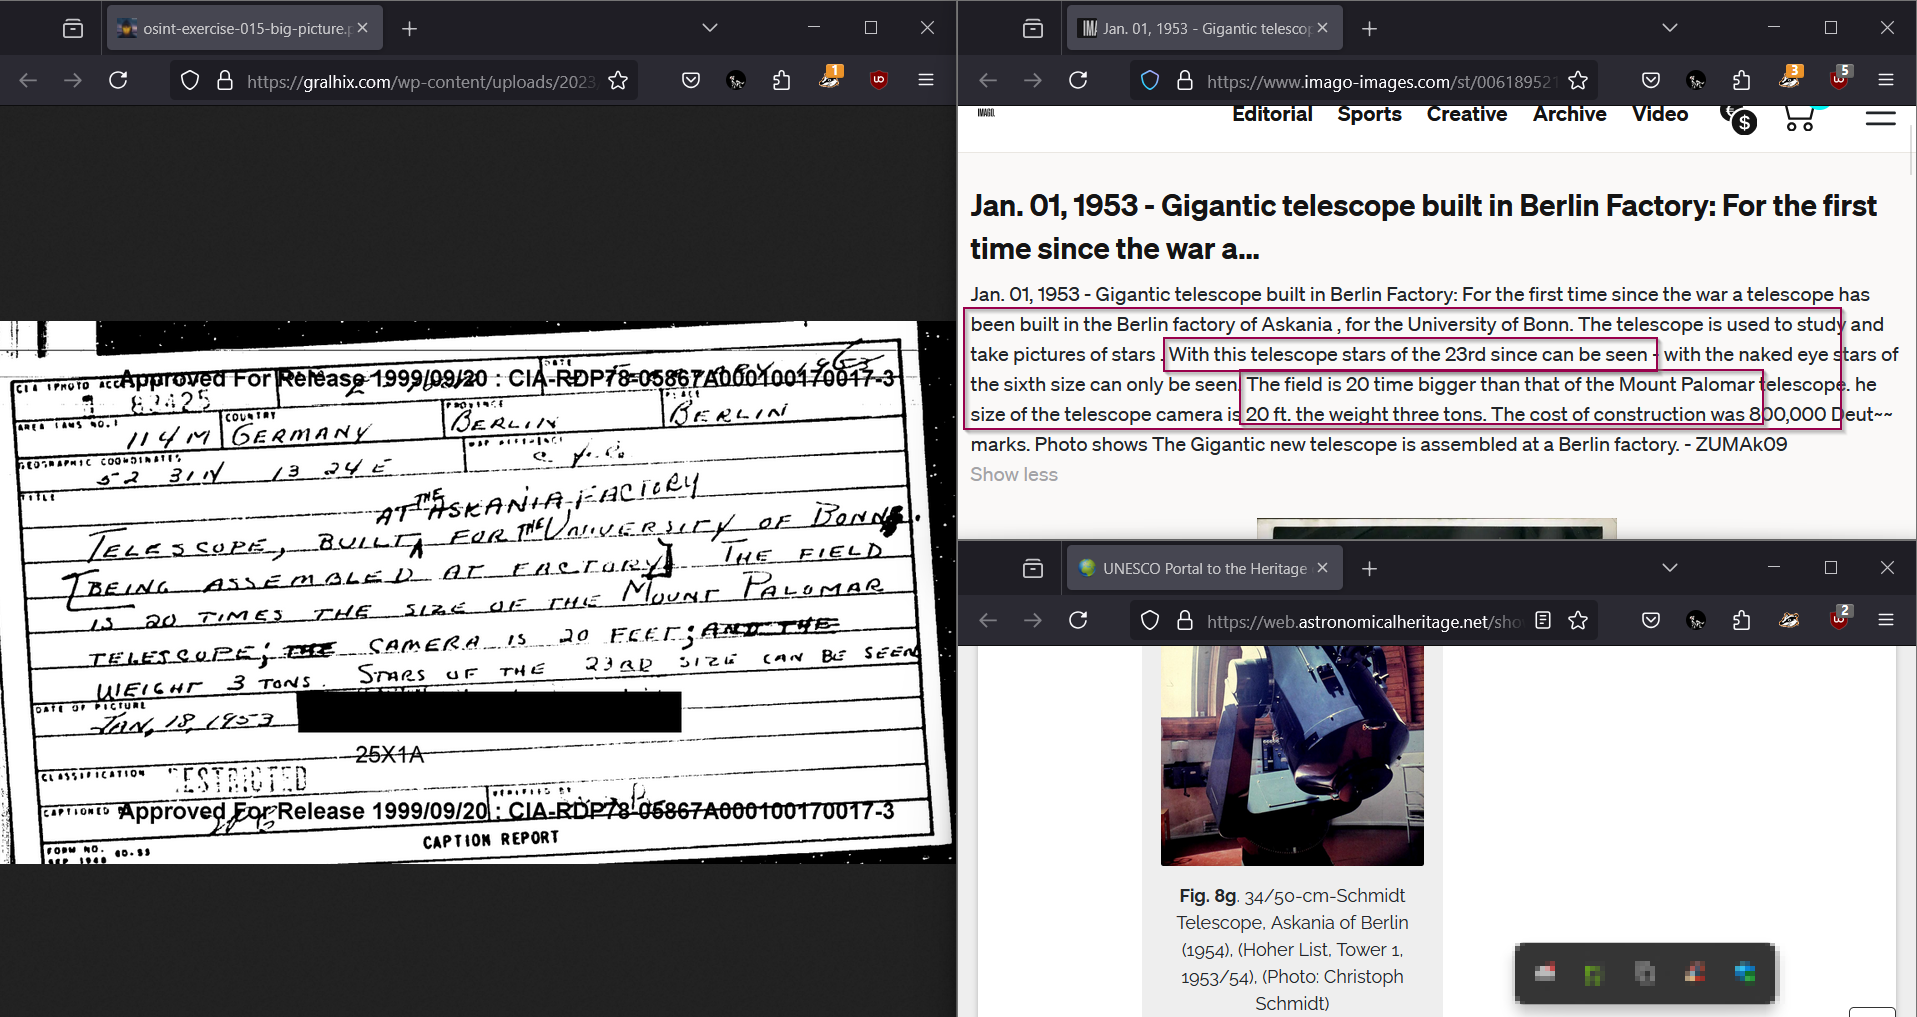 osint-exercise-015-big-picture.p
https://gralhix.com/wp-content/uploads/2023
1
CIA (PHOTO ACC
Approved For Release 1999/09/20 : CIA-RDP78-05867A000100170017-3
DATE
83425
AREA (AMS NO.)
114M
COUNTRY
GERMANY
PROVINCE
BERLIN
PLACE
BERLIN
GEOGRAPHIC COORDINATES
52 31N 13 24E
MAP REFERENCE
TITLE
AT THE ASKANIA FACTORY
TELESCOPE, BUILT FOR THE UNIVERSITY OF BONN.
[BEING ASSEMBLED AT FACTORY] THE FIELD
IS 20 TIMES THE SIZE OF THE MOUNT PALOMAR
TELESCOPE; THE CAMERA IS 20 FEET; AND THE
WEIGHT 3 TONS. STARS OF THE 23RD SIZE CAN BE SEEN
DATE OF PICTURE
JAN, 18, 1953
25X1A
CLASSIFICATION
RESTRICTED
CAPTIONED B
Approved For Release 1999/09/20 : CIA-RDP78-05867A000100170017-3
CAPTION REPORT
FORM NO.
SEP 1948
Jan. 01, 1953 - Gigantic telescop
https://www.imago-images.com/st/006189521
3
5
IMAGO.
Editorial Sports Creative Archive Video
Jan. 01, 1953 - Gigantic telescope built in Berlin Factory: For the first
time since the war a...
Jan. 01, 1953 - Gigantic telescope built in Berlin Factory: For the first time since the war a telescope has
been built in the Berlin factory of Askania , for the University of Bonn. The telescope is used to study and
take pictures of stars . With this telescope stars of the 23rd since can be seen - with the naked eye stars of
the sixth size can only be seen. The field is 20 time bigger than that of the Mount Palomar telescope. he
size of the telescope camera is 20 ft. the weight three tons. The cost of construction was 800,000 Deut~~
marks. Photo shows The Gigantic new telescope is assembled at a Berlin factory. - ZUMAk09
Show less
UNESCO Portal to the Heritage
https://web.astronomicalheritage.net/sho
2
Fig. 8g. 34/50-cm-Schmidt
Telescope, Askania of Berlin
(1954), (Hoher List, Tower 1,
1953/54), (Photo: Christoph
Schmidt)